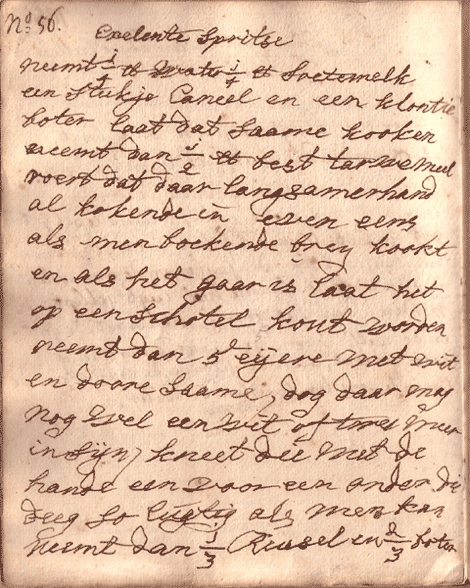 No: 56.
Exelente Spritse
neemt 1/4 tt water 1/4 tt soetemelk
een stukje Caneel en een klontie
boter laat dat saame kooken
neemt dan 1/2 tt best tarwemeel
roert dat daar langsamerhand
al kokende in even eens
als men boekende brey kookt
en als het gaar is laat het
op een schotel kout worden
neemt dan 5 eijere met wit
en doore saame, dog daar mag
nog wel een wit of twee meer
in sijn, kneet die met de
hande een voor een onder die
deeg so lugtig als men kan
neemt dan 1/3 Reusel en 2/3 boter